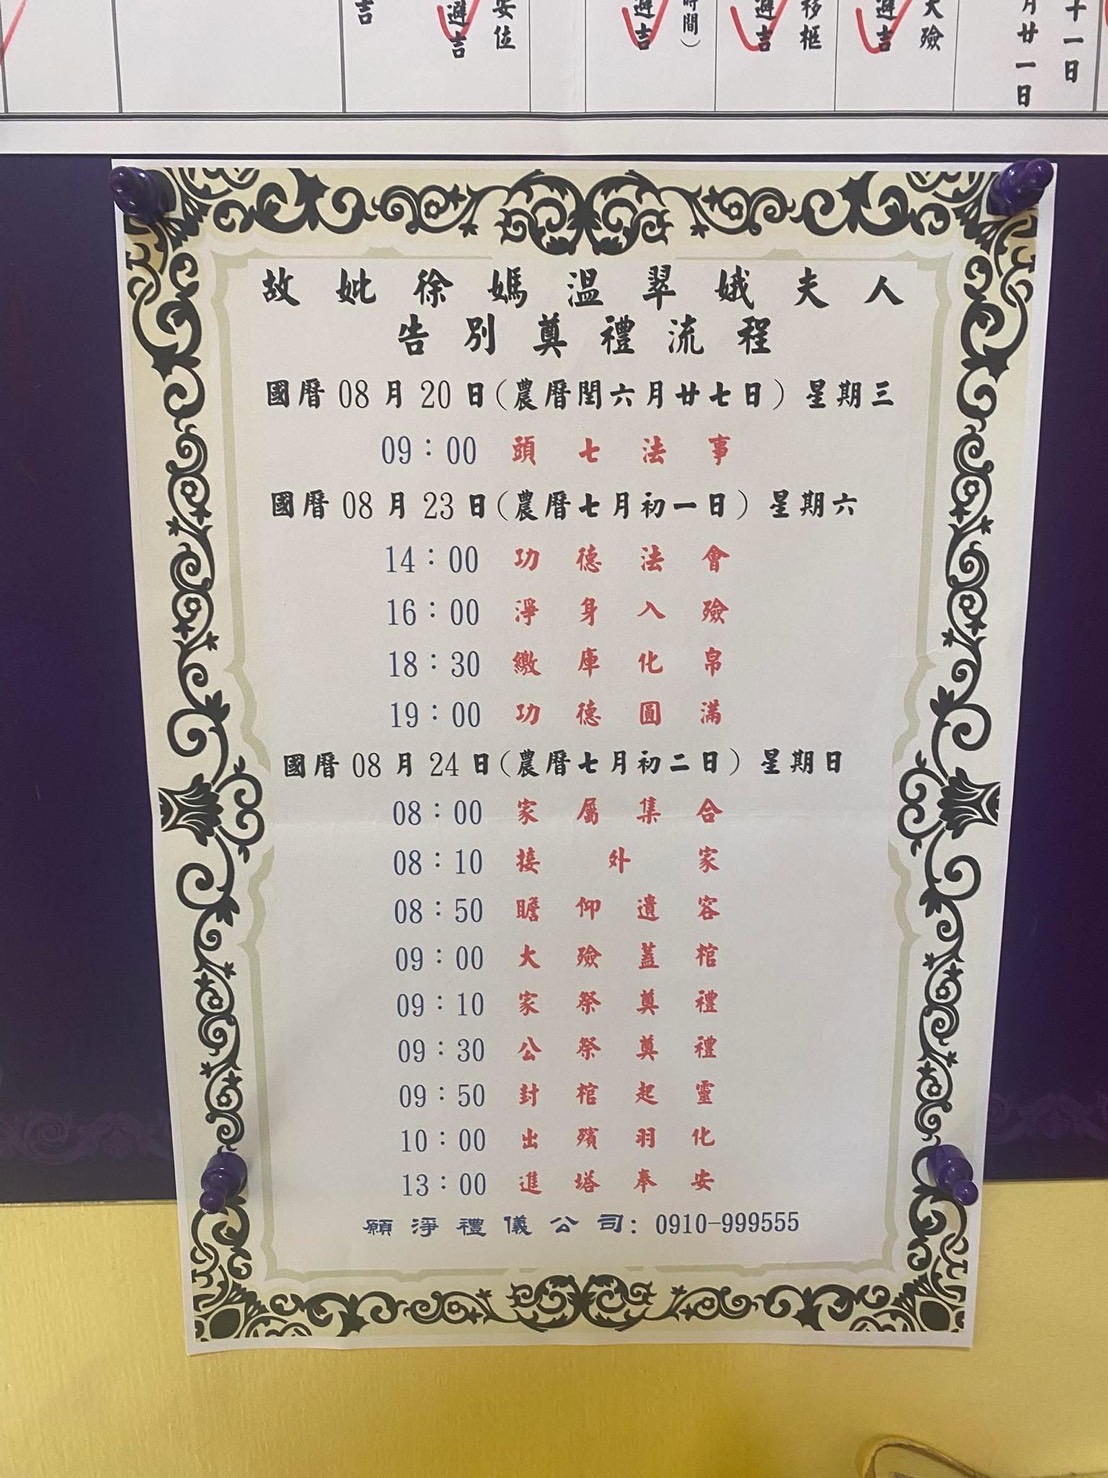 吉
避吉
安位
避吉
時間）
避吉
移柩
避吉
大殮
月廿一日
十一日
故妣徐媽溫翠娥夫人
告別奠禮流程
國曆08月20日(農曆閏六月廿七日) 星期三
09：00 頭七法事
國曆08月23日(農曆七月初一日) 星期六
14：00 功德法會
16：00 淨身入殮
18：30 繳庫化帛
19：00 功德圓滿
國曆08月24日(農曆七月初二日) 星期日
08：00 家屬集合
08：10 接外家
08：50 瞻仰遺容
09：00 大殮蓋棺
09：10 家祭奠禮
09：30 公祭奠禮
09：50 封棺起靈
10：00 出殯羽化
13：00 進塔奉安
願淨禮儀公司: 0910-999555